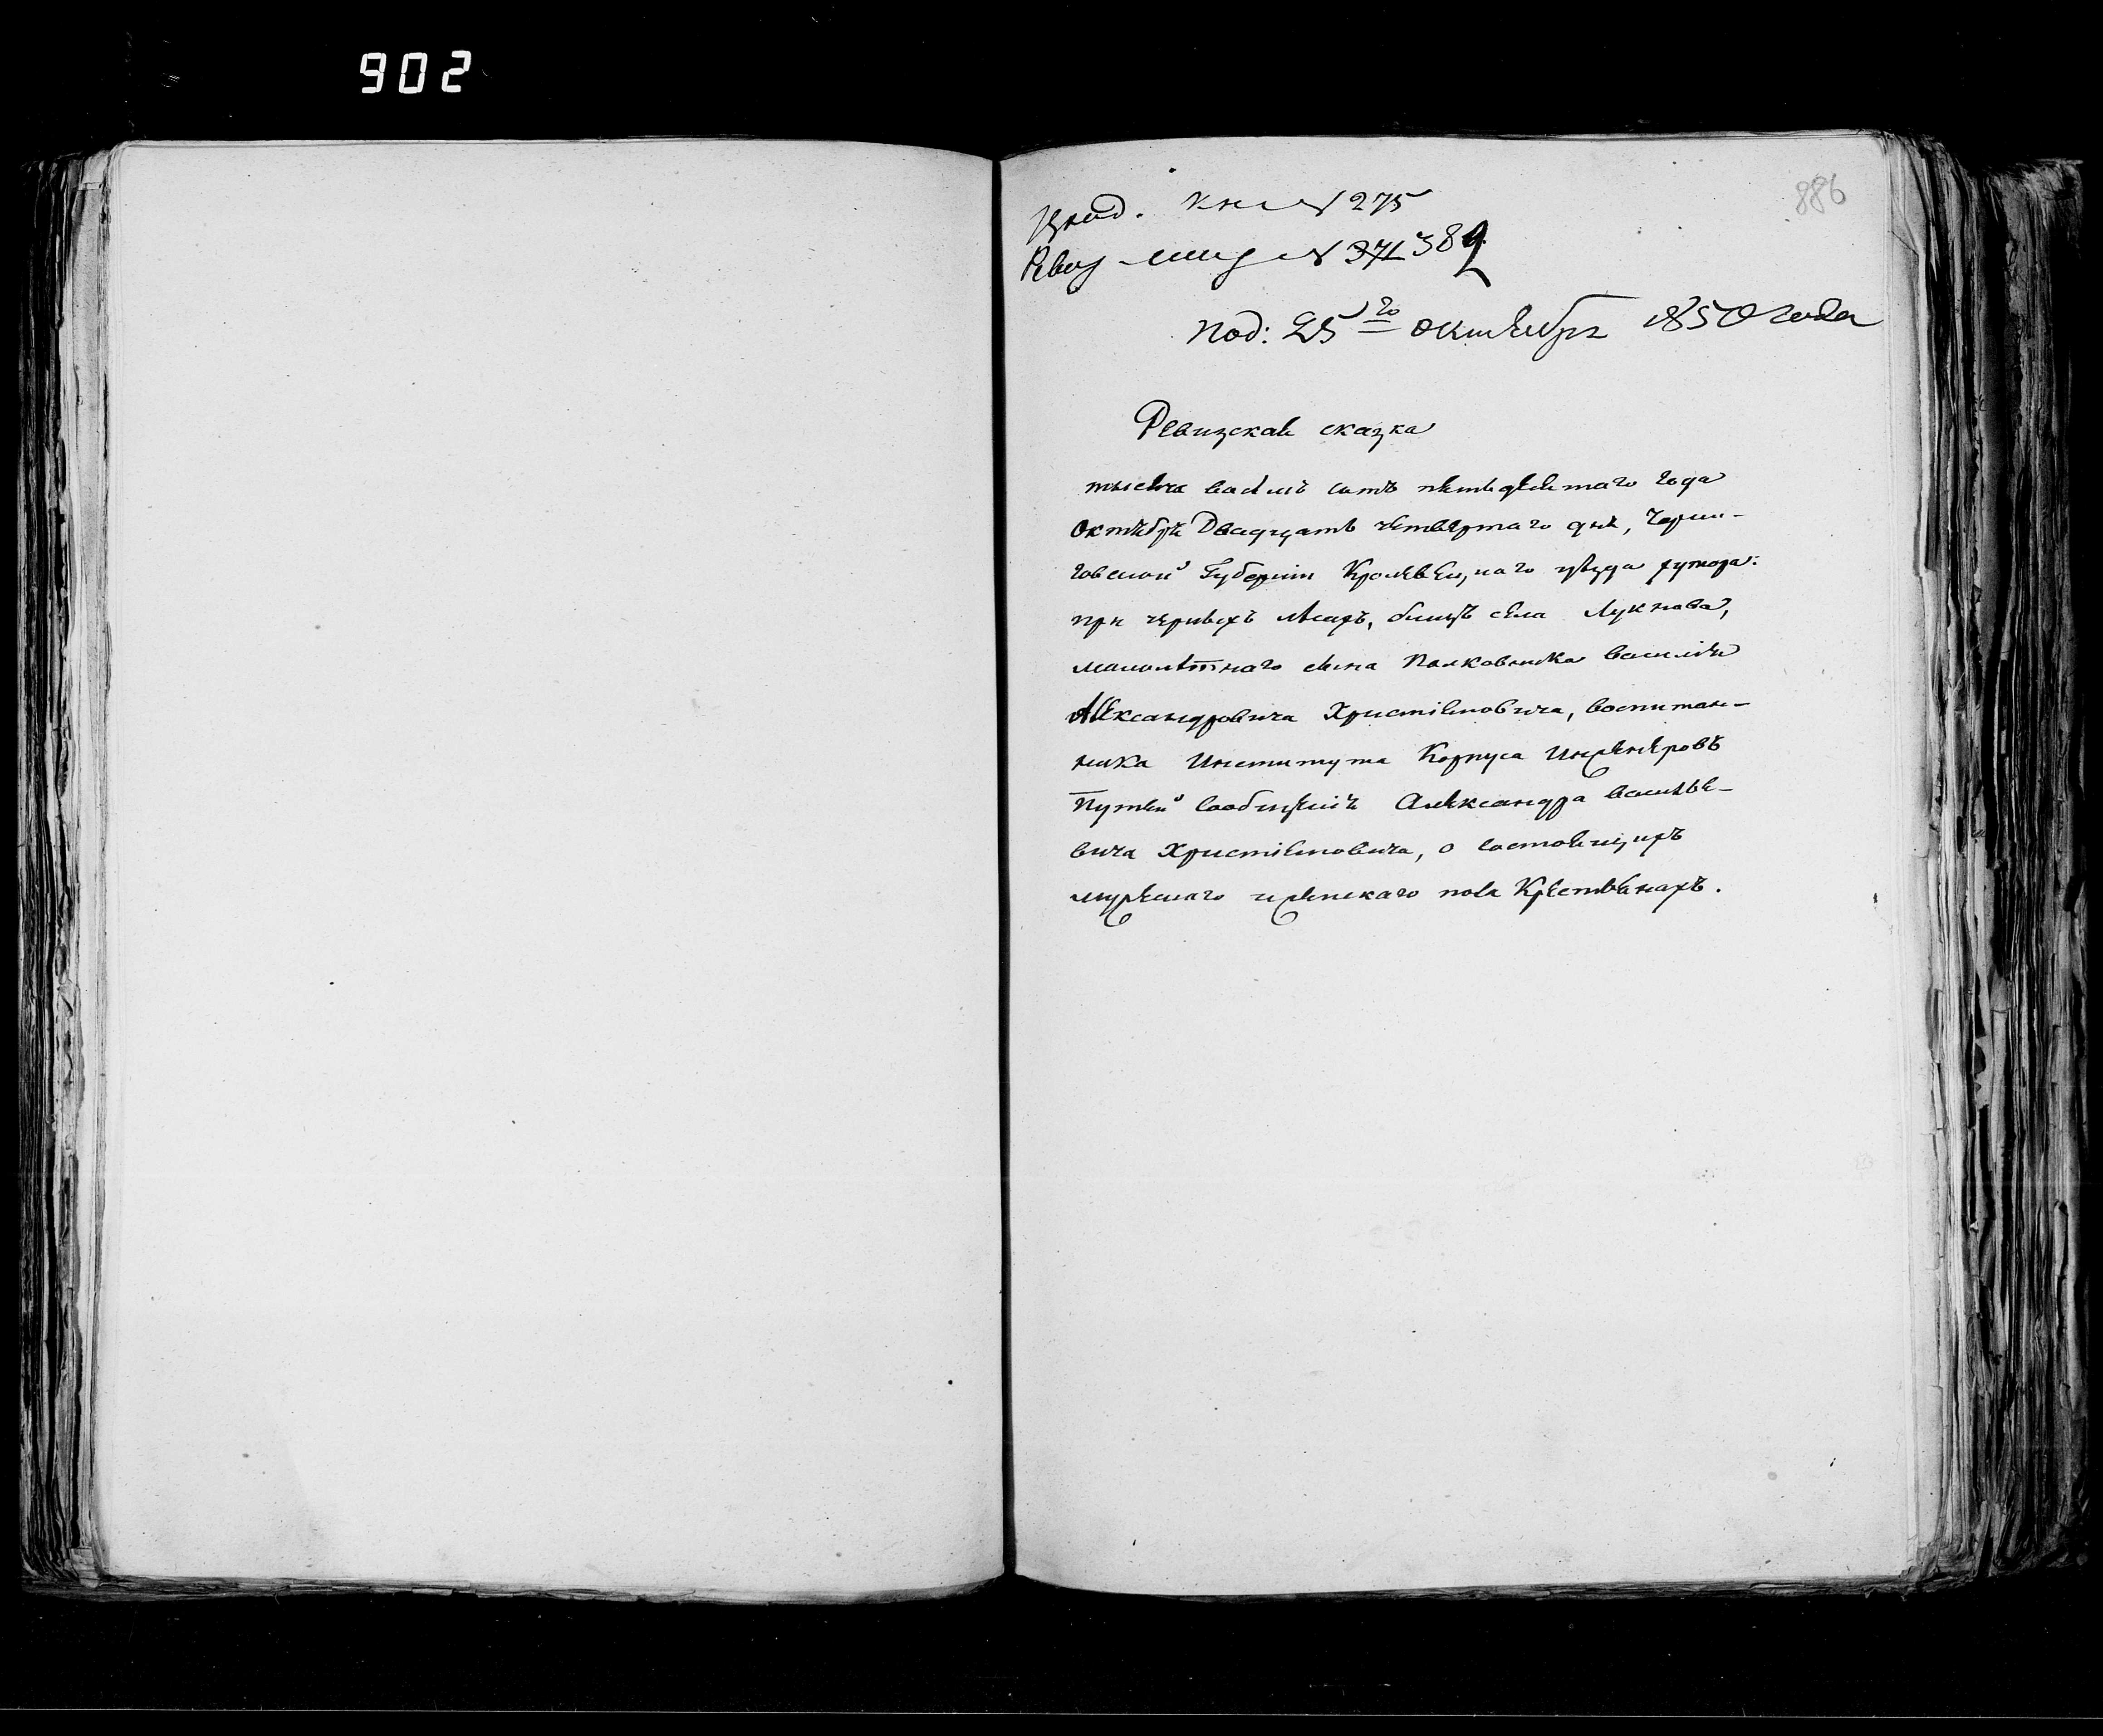 902
886
Кн. № 275
Ревиз. № 371 389
Под: 25го октября 1850 года
Ревизская сказка
тысяча восемь сотъ пятьдесятаго года
Октября Двадцать четвертаго дня, Черни-
говской Губерніи Кролевецкаго уѣзда хутора:
при червехъ лѣсахъ, близъ села Лукнова,
малолѣтнаго сына Полковника Василія
Александровича Христіановича, воспитан-
ника Института Корпуса Инженеровъ
Путей Сообщенія Александра Василье-
вича Христіановича, о состоящихъ
мужескаго и женскаго пола Крестьянахъ.